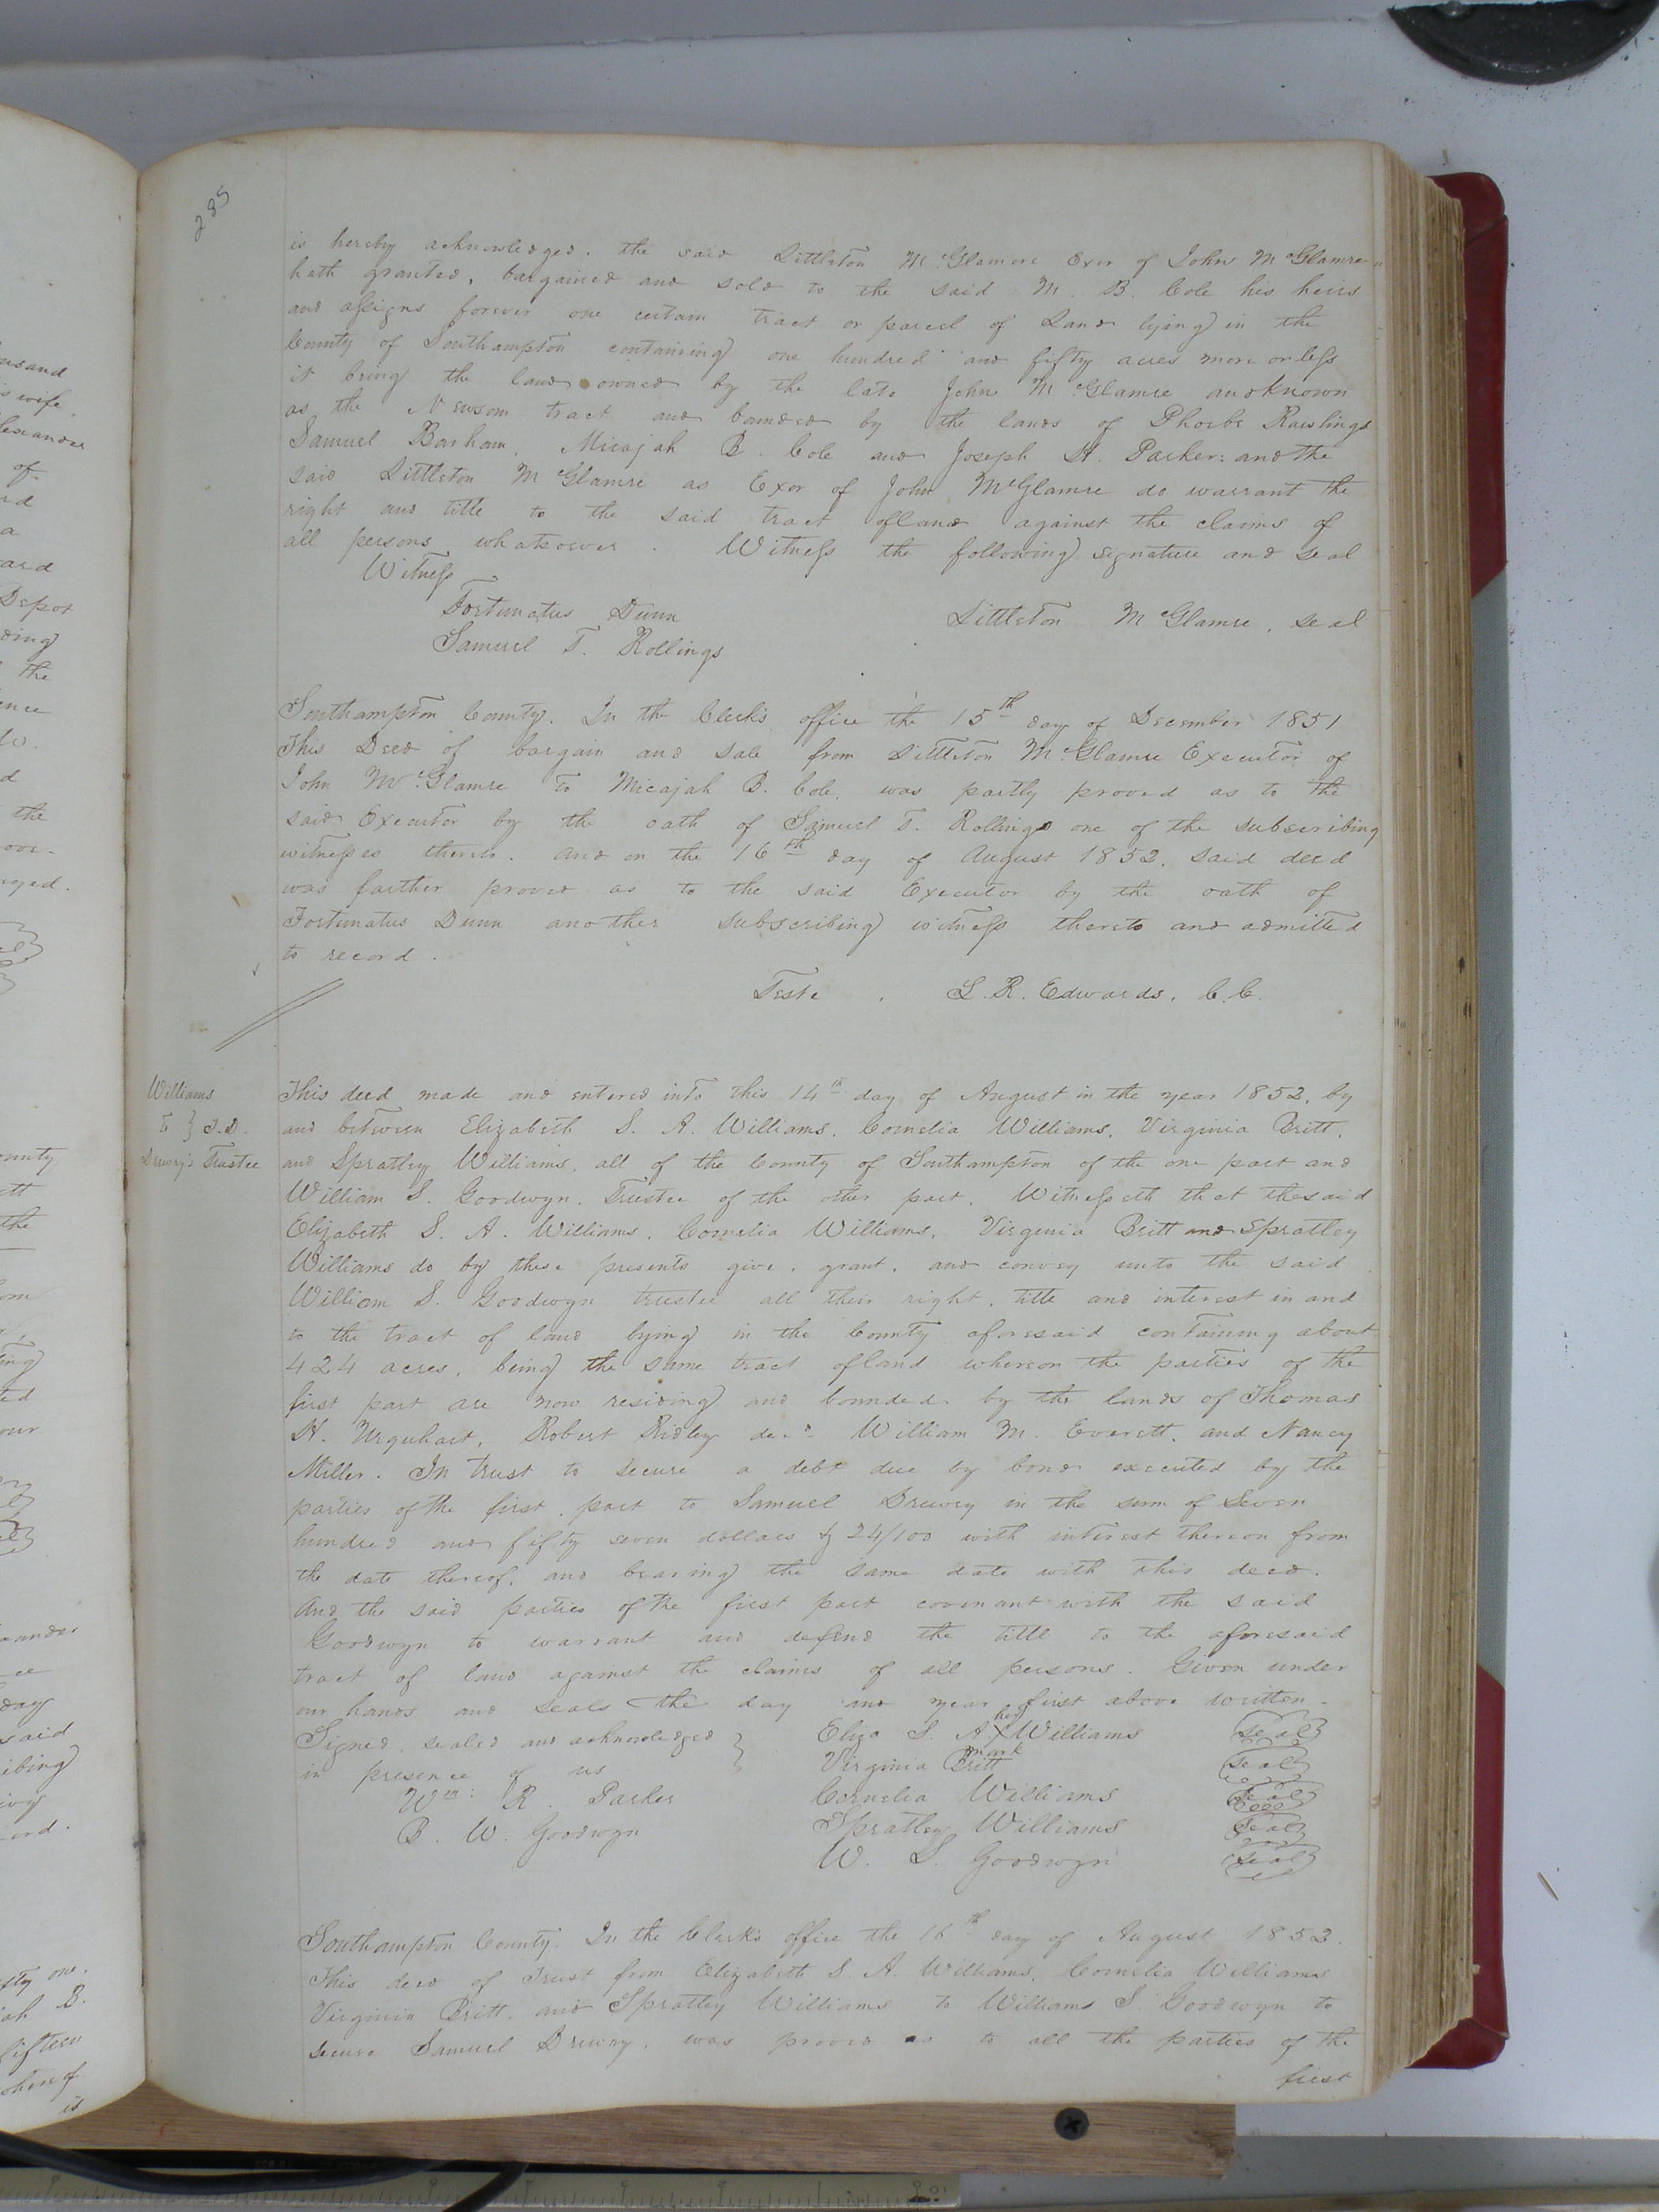 285
is hereby acknowledged. the said Littleton McGlamre Exor of John McGlamre
hath granted, bargained and sold to the said M. B. Cole his heirs
and assigns forever one certain tract or parcel of Land lying in the
County of Southampton containing one hundred and fifty acres more or less
it being the land owned by the late John McGlamre and known
as the Newsom tract and bounded by the lands of Phoebe Rawlings
Samuel Barham, Micajah B. Cole and Joseph H. Parker: and the
said Littleton McGlamre as Exor of John McGlamre do warrant the
right and title to the said tract of land against the claims of
all persons whatsoever. Witness the following signature and seal
Witness
Fortunatus Dunn
Littleton McGlamre. seal
Samuel T. Rollings
Southampton County. In the Clerk's office the 15th day of December 1851
This Deed of bargain and sale from Littleton McGlamre Executor of
John McGlamre to Micajah B. Cole. was partly proved as to the
said Executor by the oath of Samuel T. Rollings one of the subscribing
witnesses thereto. and on the 16th day of August 1852. said deed
was farther proved as to the said Executor by the oath of
Fortunatus Dunn another subscribing witness thereto and admitted
to record.
Teste. L. R. Edwards. C.C.
Williams
to } T.D.
Drewry's Trustee
This deed made and entered into this 14th day of August in the year 1852, by
and between Elizabeth S. A. Williams, Cornelia Williams, Virginia Britt,
and Spratley Williams, all of the County of Southampton of the one part and
William S. Goodwyn. Trustee of the other part. Witnesseth that the said
Elizabeth S. A. Williams, Cornelia Williams, Virginia Britt and Spratley
Williams do by these presents give, grant, and convey unto the said
William S. Goodwyn trustee all their right, title and interest in and
to the tract of land lying in the County aforesaid containing about
424 acres, being the same tract of land whereon the parties of the
first part are now residing and bounded by the lands of Thomas
H. Urquhart, Robert Ridley decd William M. Everett, and Nancy
Miller. In trust to secure a debt due by bond executed by the
parties of the first part to Samuel Drewry in the sum of Seven
hundred and fifty seven dollars & 24/100 with interest thereon from
the date thereof, and bearing the same date with this deed.
And the said parties of the first part covenant with the said
Goodwyn to warrant and defend the title to the aforesaid
tract of land against the claims of all persons. Given under
our hands and seals the day and year first above written.
Signed, sealed and acknowledged } Eliza S. A. her X mark Williams seal
in presence of us } Virginia Britt seal
Wm: R. Parker Cornelia Williams seal
B. W. Goodwyn Spratley Williams seal
W. S. Goodwyn seal
Southampton County. In the Clerk's office the 16th day of August 1852.
This deed of Trust from Elizabeth S. A. Williams, Cornelia Williams
Virginia Britt. and Spratley Williams to Williams S. Goodwyn to
secure Samuel Drewry. was proved as to all the parties of the
first